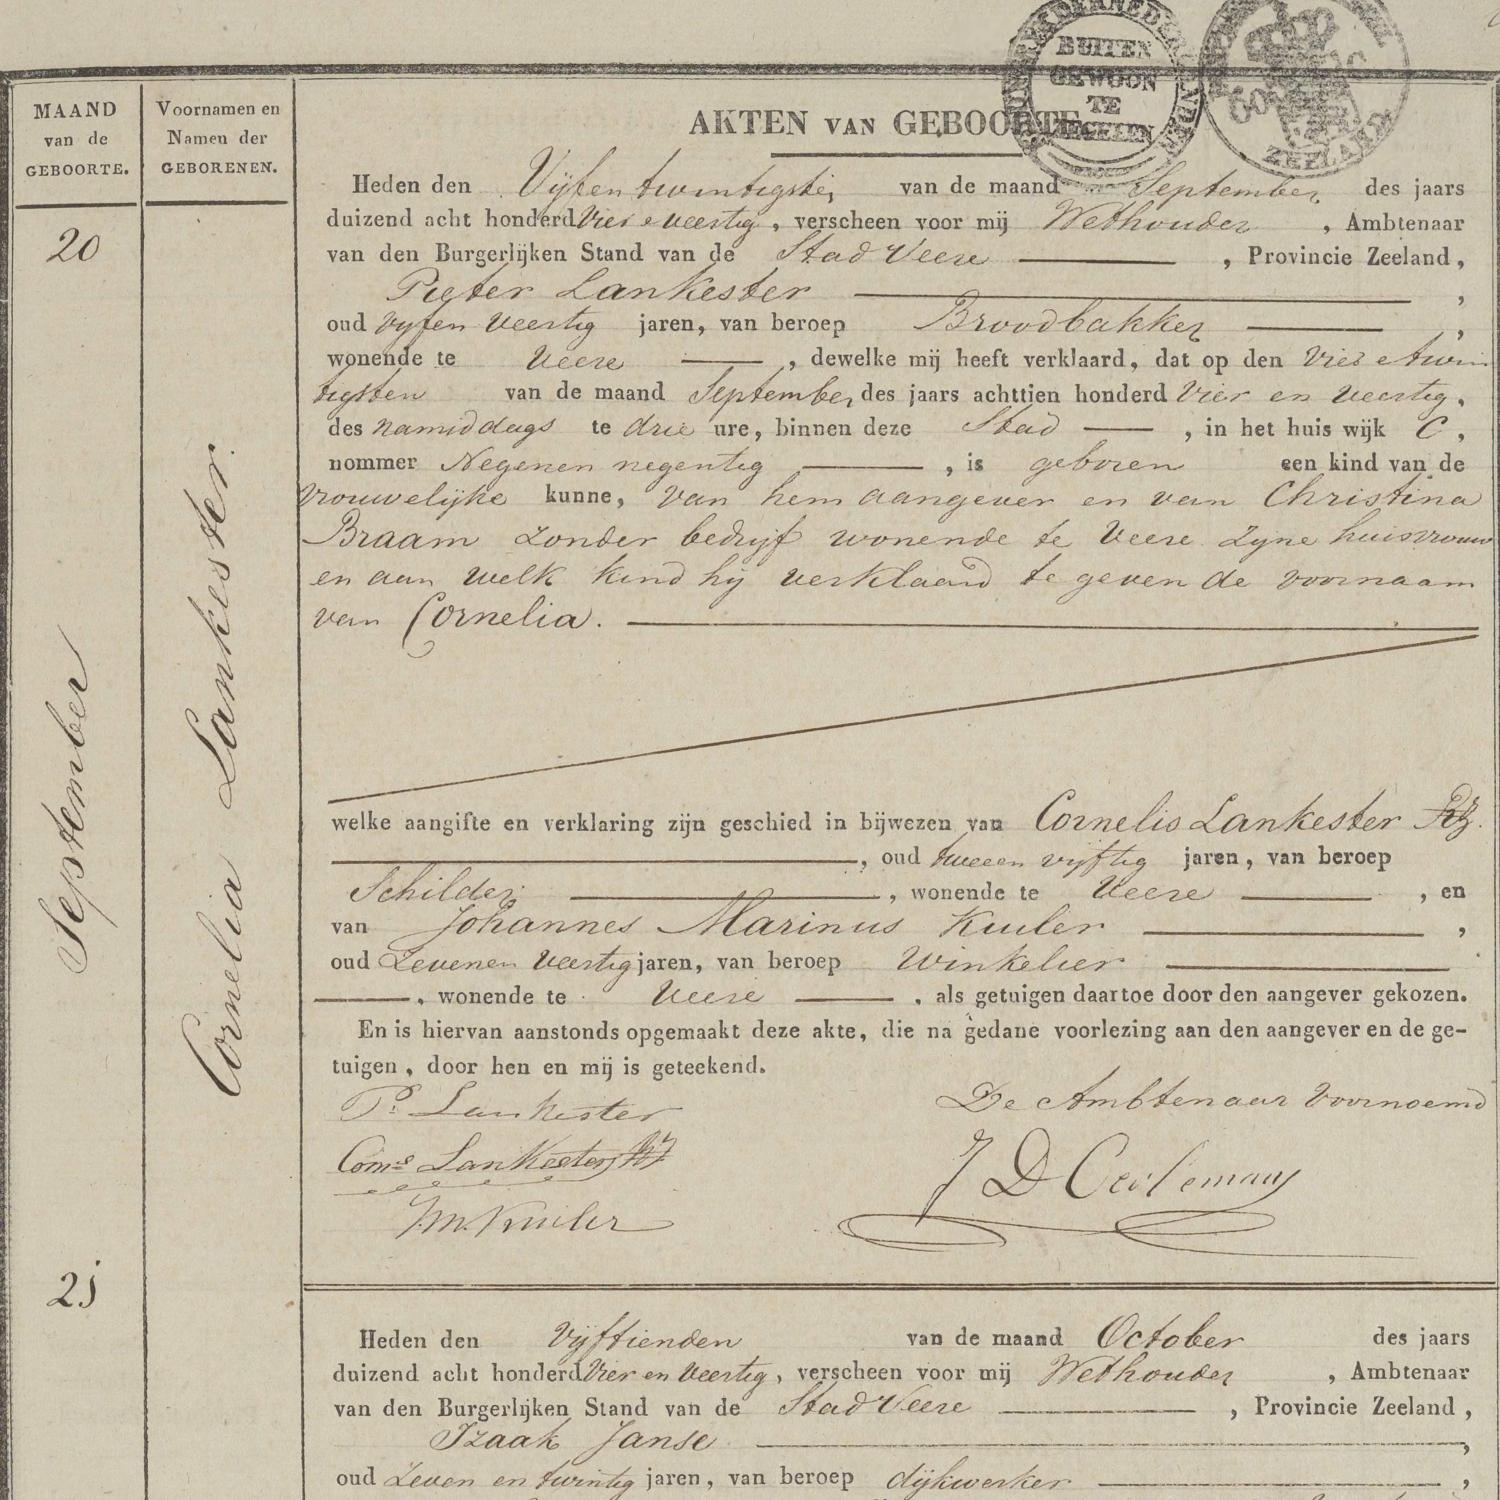 BUITEN
GEWOON
TE
ZEGELEN
ZEELAND
MAAND
van de
GEBOORTE.
Voornamen en
Namen der
GEBORENEN.
20
September
Cornelia Lankester.
AKTEN VAN GEBOORTE
Heden den Vijfentwintigste, van de maand September, des jaars
duizend acht honderd Vier e veertig, verscheen voor mij Wethouder, Ambtenaar
van den Burgerlijken Stand van de Stad Veere, Provincie Zeeland,
Pieter Lankester,
oud vyfen veertig jaren, van beroep Broodbakker,
wonende te Veere, dewelke mij heeft verklaard, dat op den Vier e twin
tigsten van de maand September, des jaars achttien honderd Vier en veertig,
des namiddags te drie ure, binnen deze Stad, in het huis wijk C,
nommer Negenen negentig, is geboren een kind van de
vrouwelijke kunne, van hem aangever en van Christina
Braam zonder bedrijf wonende te Veere zyne huisvrouw
en aan welk kind hij verklaard te geven de voornaam
van Cornelia.
welke aangifte en verklaring zijn geschied in bijwezen van Cornelis Lankester
, oud tweeen vyftig jaren, van beroep
Schilder, wonende te Veere, en
van Johannes Marinus Kuiler,
oud Zevenen Veertig jaren, van beroep Winkelier
, wonende te Veere, als getuigen daartoe door den aangever gekozen.
En is hiervan aanstonds opgemaakt deze akte, die na gedane voorlezing aan den aangever en de ge-
tuigen, door hen en mij is geteekend.
P. Lankester
De Ambtenaar Voornoemd
Corns Lankester
J D Oerlemans
J.M. Kuiler
21
Heden den Vijftienden van de maand October des jaars
duizend acht honderd Vier en Veertig, verscheen voor mij Wethouder, Ambtenaar
van den Burgerlijken Stand van de Stad Veere, Provincie Zeeland,
Izaak Janse,
oud Zeven en twintig jaren, van beroep dijkwerker,